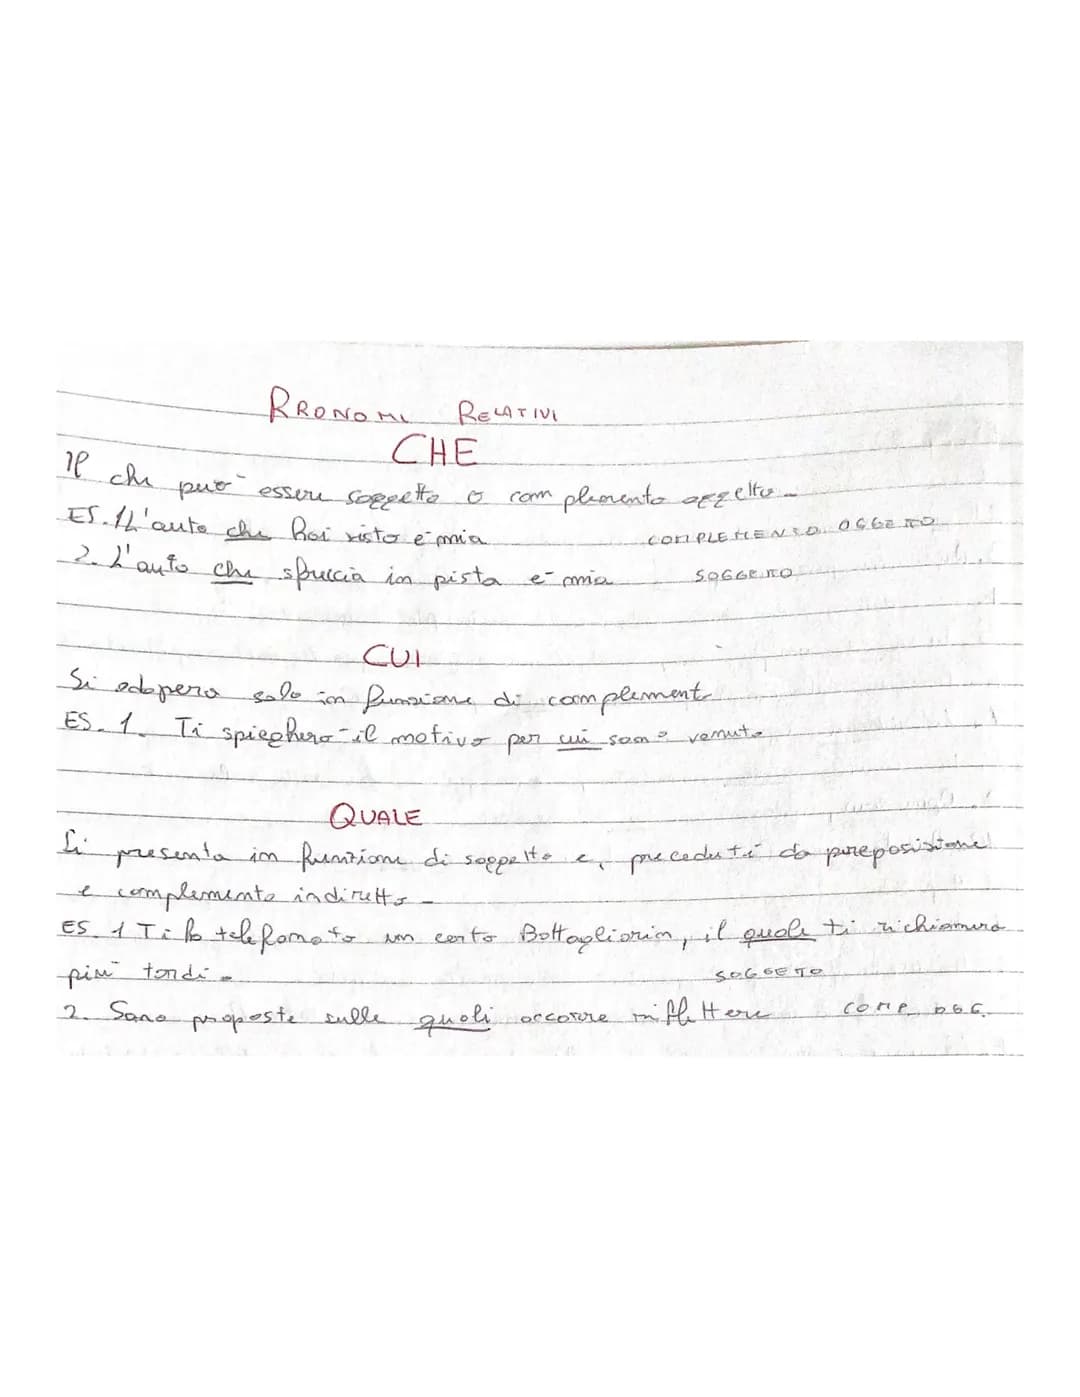 PRONOMI RELATIVI
CHE
Il che può essere soggetto o complemento oggetto.
ES. 1 L'auto che hai visto è mia COMPLEMENTO OGGETTO
2. L'auto che sbuccia in pista è mia SOGGETTO
CUI
Si adopera solo in funzione di complement
ES. 1. Ti spiegherò il motivo per cui sono venuto
QUALE
Si presenta in funzione di soggetto e, preceduti da preposizione
e complemento indiretto.
ES. 1 Ti ha telefonato un certo Battagliarin, il quale ti richiamerà
più tardi. SOGGETO
2. Sono proposte sulle quali occorre riflettere COMP. OGG.